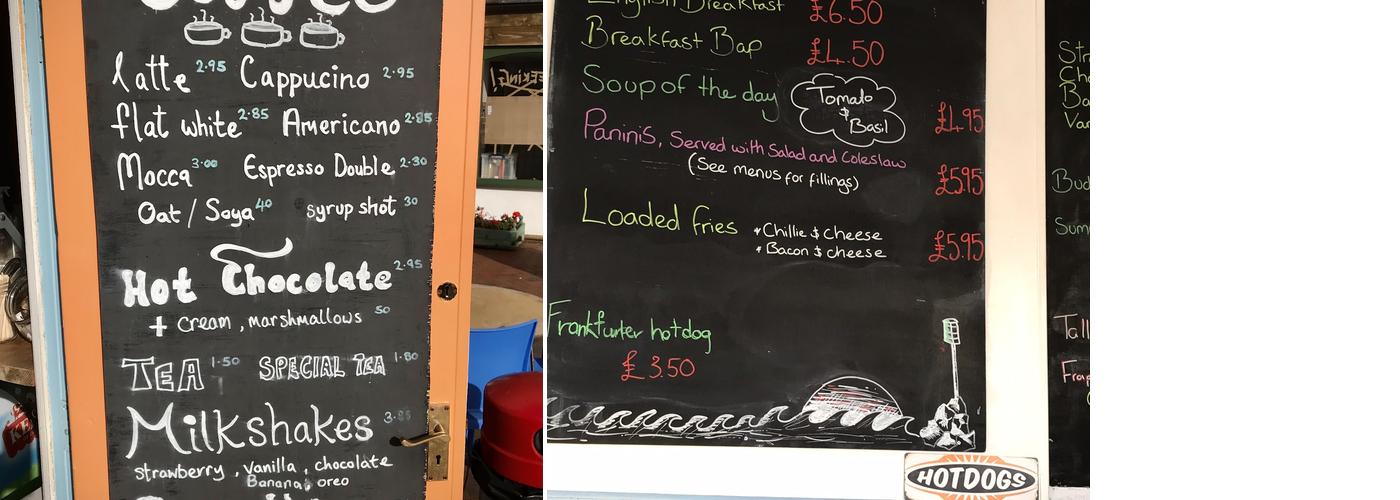 latte 2.95 Cappucino 2.95
flat white 2.85 Americano 2.85
Mocca 3.00 Espresso Double 2.30
Oat / Soya 40 syrup shot 30
Hot Chocolate 2.95
+ cream, marshmallows 50
TEA 1.50 SPECIAL TEA 1.80
Milkshakes
strawberry, vanilla, chocolate
Banana, oreo
English Breakfast £6.50
Breakfast Bap £4.50
Soup of the day Tomato & Basil £4.95
Paninis, Served with Salad and Coleslaw
(See menus for fillings) £5.95
Loaded fries *Chillie & cheese
*Bacon & cheese £5.95
Frankfurter hotdog
£3.50
HOTDOGS